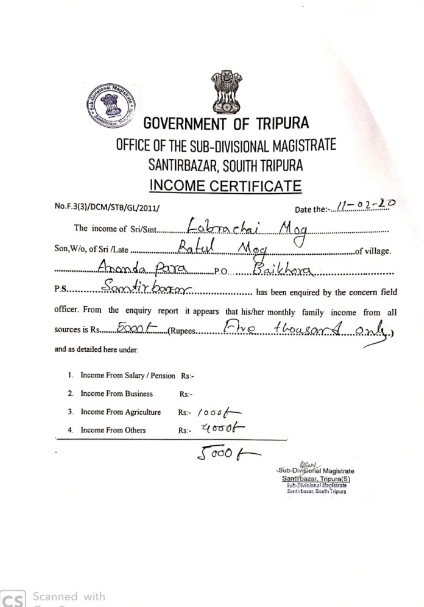 Sub-Divisional Magistrate
GOVERNMENT OF TRIPURA
OFFICE OF THE SUB-DIVISIONAL MAGISTRATE
SANTIRBAZAR, SOUITH TRIPURA
INCOME CERTIFICATE
No.F.3(3)/DCM/STB/GL/2011/ Date the:- 11-02-20
The income of Sri/Smt. Labrachai Mog
Son,W/o, of Sri /Late Ratul Mog /o, of village.
Ananda para P.O Baikhora
P.S. Santirbazar has been enquired by the concern field
officer. From the enquiry report it appears that his/her monthly family income from all
sources is Rs. 5000/- (Rupees Five thousand only)
and as detailed here under:
1. Income From Salary / Pension Rs:-
2. Income From Business Rs:-
3. Income From Agriculture Rs:- 1000/-
4. Income From Others Rs:- 4000/-
5000/-
Sub-Divisional Magistrate
Santirbazar, Tripura(S)
Sub-Divisional Magistrate
Santirbazar, South Tripura
CS Scanned with